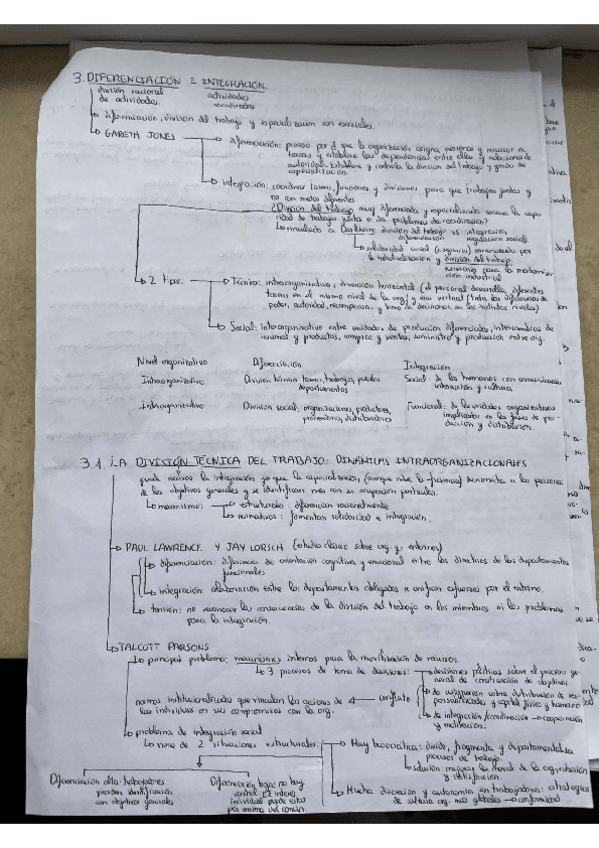 3. DIFERENCIACIÓN E INTEGRACIÓN
división racional de actividades. actividades coordinadas
diferenciación, división del trabajo y especialización son esenciales.
GARETH JONES
diferenciación: proceso por el que la organización asigna personas y recursos a
tareas y establece las dependencias entre ellas y relaciones de
autoridad. Establece y controla la división del trabajo y grado de
especialización
integración: coordinar tareas, funciones y divisiones para que trabajen juntas y
no con metas diferentes
¿División del trabajo muy diferenciada y especializada socava la capa
cidad de trabajar juntos o da problemas de coordinación?
vinculado a Durkheim: división del trabajo vs integración
diferenciación regulación social
solidaridad social (orgánica) amenazada por
la industrialización y división del trabajo
necesario para la moderniza
ción industrial
2 tipos:
Técnica: intraorganizativo, dimensión horizontal (el personal desarrolla diferentes
tareas en el mismo nivel de la org.) y una vertical (trata las diferencias de
poder, autoridad, recompensa, y toma de decisiones en los distintos niveles)
Social: interorganizativo entre unidades de producción diferenciadas, intercambios de
insumos y productos, compras y ventas, suministro y producción entre org.
Nivel organizativo Diferenciación Integración
Intraorganizativo División técnica tareas, trabajos, puestos departamentos Social: de los humanos con comunicación interacción y cultura.
Interorganizativo División social, organizaciones, productores, proveedores, distribuidores Funcional: de las unidades organizativas implicadas en las fases de pro- ducción y distribución.
3.1. LA DIVISIÓN TÉCNICA DEL TRABAJO: DINÁMICAS INTRAORGANIZACIONALES
puede reducir la integración ya que la especialización (aunque sube la eficiencia) desconecta a las personas
de los objetivos generales y se identifican más con su ocupación particular.
mecanismos:
estructurales: diferencian racionalmente
normativos: fomentan solidaridad e integración.
PAUL LAWRENCE Y JAY LORSCH (estudio clásico sobre org. y entornos)
diferenciación: diferencia de orientación cognitiva y emocional entre los directivos de los departamentos
funcionales
integración: colaboración entre los departamentos obligados a unificar esfuerzos por el entorno.
tensión: no reconocer las consecuencias de la división del trabajo en los miembros ni los problemas
para la integración.
TALCOTT PARSONS
principal problema: mecanismos internos para la movilización de recursos.
3 procesos de toma de decisiones:
decisiones políticas sobre el proceso ge-
neral de construcción de objetivos
de asignación sobre distribución de res-
ponsabilidades y capital físico y humano
de integración/coordinación → cooperación
y motivación.
normas institucionalizadas que vinculan las acciones de
los individuos en sus compromisos con la org.
conflicto
problema de integración social
viene de 2 situaciones estructurales:
Muy burocrática: divide, fragmenta y departamentaliza
procesos de trabajo.
solución: mejorar la moral de la org, cohesión
y satisfacción.
Mucha discreción y autonomía en trabajadores: estrategias
de cultura org. más globales → conformidad.
Diferenciación alta: trabajadores
pierden identificación
con objetivos generales
Diferenciación baja: no hay
control. El interés
individual puede estar
por encima del común.